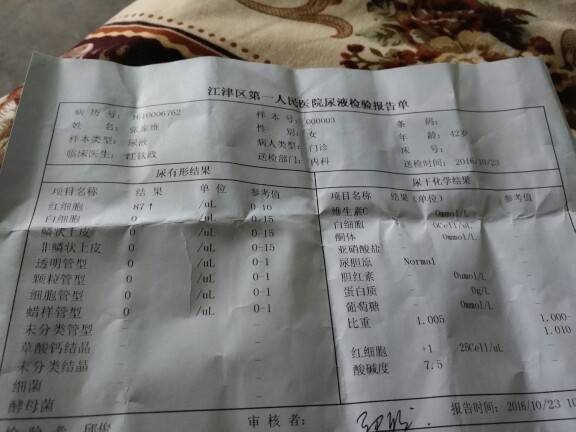 江津区第一人民医院尿液检验报告单
病 历 号: 1610006762 样 本 号: 000003 条 码:
姓 名: 性 别: 女 年 龄: 42岁
样本类型: 尿液 病人类型: 门诊 床 号:
临床医生: 送检部门: 内科 送检时间: 2016/10/23
尿有形结果
项目名称 结 果 单 位 参考值
红细胞 87↑ /uL 0-10
白细胞 0 /uL 0-15
鳞状上皮 0 /uL 0-15
非鳞状上皮 0 /uL 0-15
透明管型 0 /uL 0-1
颗粒管型 0 /uL 0-1
细胞管型 0 /uL 0-1
蜡样管型 0 /uL 0-1
未分类管型 - -
草酸钙结晶 - -
未分类结晶 - -
细菌 - -
酵母菌 - -
尿干化学结果
项目名称 结果(单位) 参考值
维生素C - 0mmol/L
白细胞 - 0Cell/uL
酮体 - 0mmol/L
亚硝酸盐 -
尿胆原 Normal
胆红素 - 0umol/L
蛋白质 - 0g/L
葡萄糖 - 0mmol/L
比重 1.005 1.000-
1.010
红细胞 +1 25Cell/uL -
酸碱度 7.5 -
检 验 者: 邱俊 审 核 者: 报告时间: 2016/10/23 10